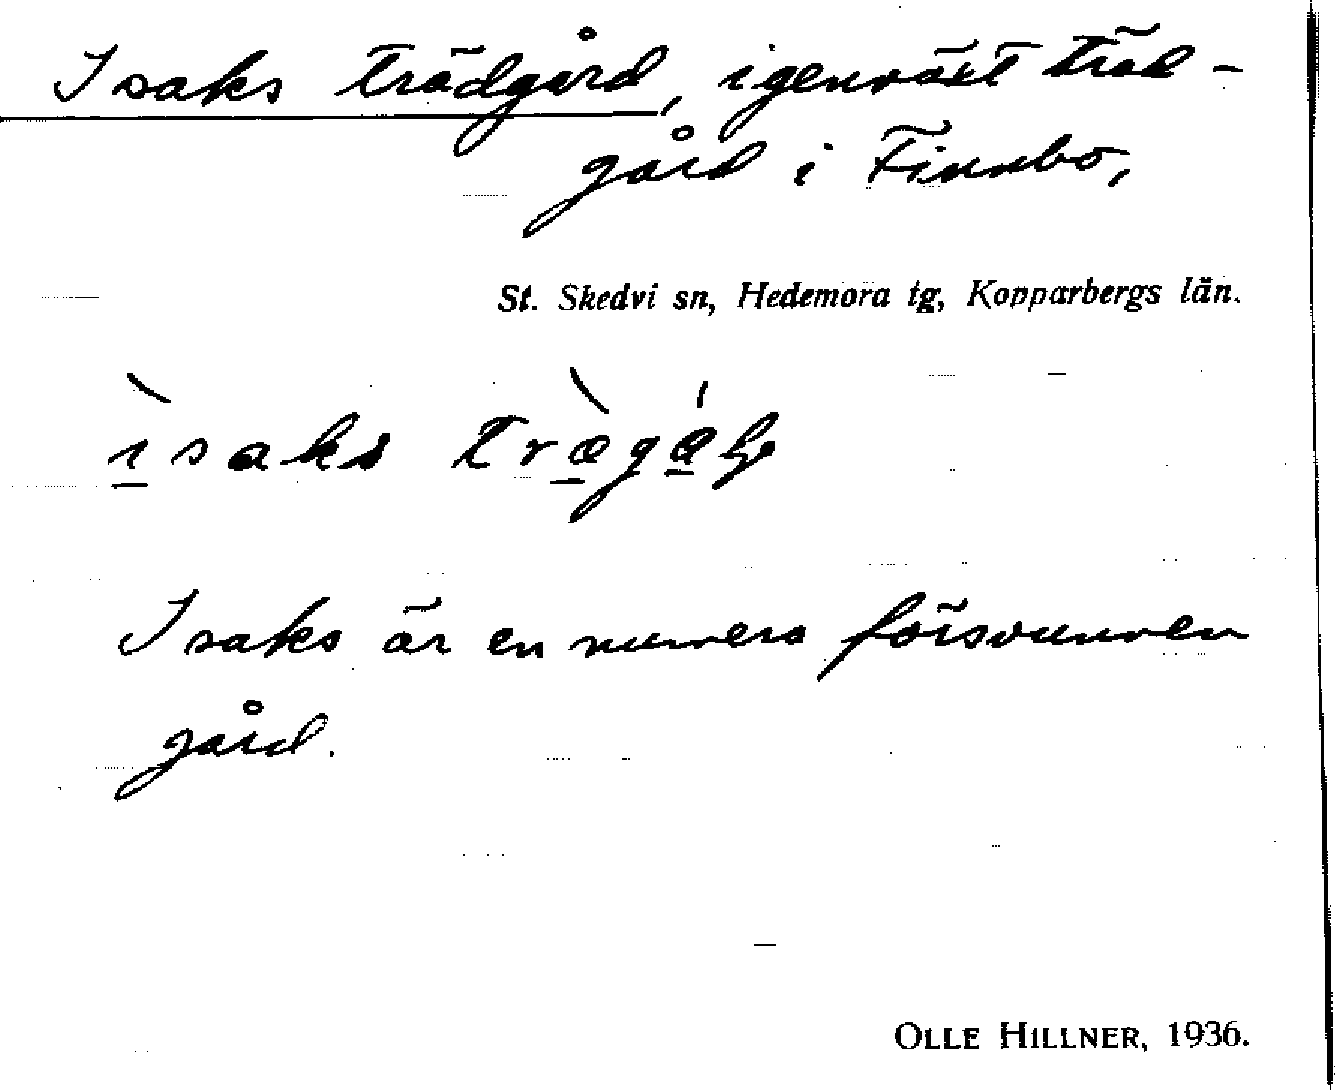 Isaks trädgård, igenväxt träd-
gård i Finnbo,
St. Skedvi sn, Hedemora tg, Kopparbergs län.
ìsaks
Isaks är en numera försvunnen
gård.
OLLE HILLNER, 1936.